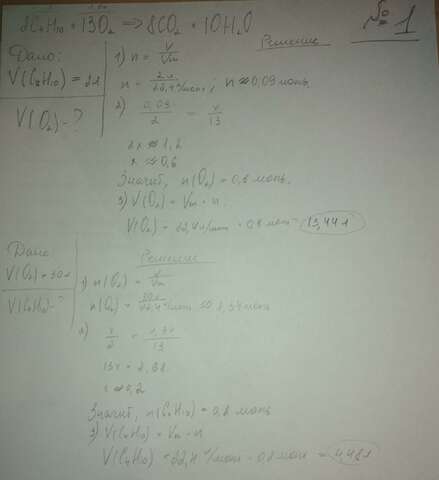 2C₄H₁₀ + 13O₂ ⟹ 8CO₂ + 10H₂O
№ 1
Дано:
V(C₄H₁₀) = 2л
V(O₂) - ?
Решение
1) n = V/Vm
n = 2л/22,4л/моль; n ≈ 0,09 моль.
2) 0,09/2 = x/13
2x ≈ 1,2
x ≈ 0,6
Значит, n(O₂) = 0,6 моль.
3) V(O₂) = Vm · n
V(O₂) = 22,4л/моль · 0,6 моль = 13,44л
Дано:
V(O₂) = 30л
V(C₄H₁₀) - ?
Решение
1) n(O₂) = V/Vm
n(O₂) = 30л/22,4л/моль ≈ 1,34 моль
2) x/2 = 1,34/13
13x = 2,68
x ≈ 0,2
Значит, n(C₄H₁₀) = 0,2 моль
3) V(C₄H₁₀) = Vm · n
V(C₄H₁₀) = 22,4 л/моль · 0,2 моль = 4,48л